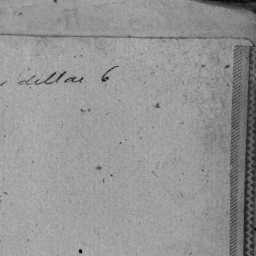 dellar 6